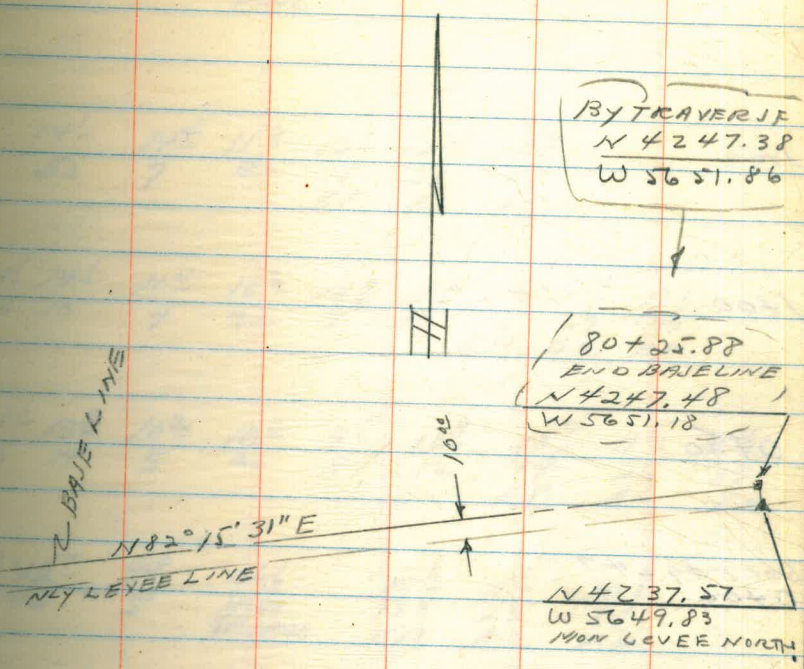 BY TRAVERSE
N 4247.38
W 5651.86
80+25.88
END BASELINE
N 4247.48
W 5651.18
BASELINE
10.00
N82°15'31"E
NLY LEVEE LINE
N4237.57
W 5649.83
MON LEVEE NORTH